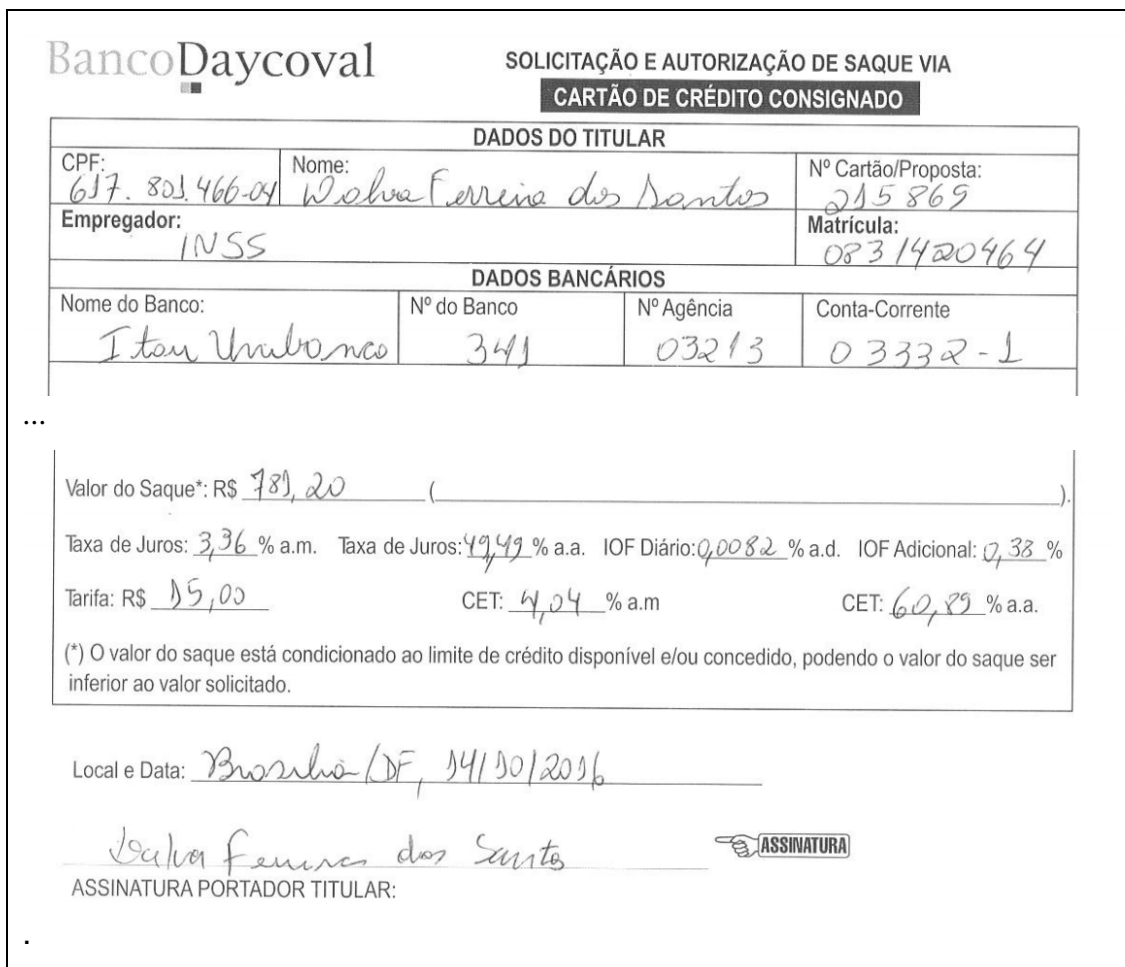 BancoDaycoval
SOLICITAÇÃO E AUTORIZAÇÃO DE SAQUE VIA
CARTÃO DE CRÉDITO CONSIGNADO
DADOS DO TITULAR
CPF: Nome: Nº Cartão/Proposta:
617.801.466-04 Dalva Ferreira dos Santos 215869
Empregador: Matrícula:
INSS 0831420464
DADOS BANCÁRIOS
Nome do Banco: Nº do Banco Nº Agência Conta-Corrente
Itau Unibanco 341 03213 03332-1
...
Valor do Saque*: R$ 781,20 ( ).
Taxa de Juros: 3,36 % a.m. Taxa de Juros: 49,49 % a.a. IOF Diário: 0,0082 % a.d. IOF Adicional: 0,38 %
Tarifa: R$ 15,00 CET: 4,04 % a.m CET: 60,89 % a.a.
(*) O valor do saque está condicionado ao limite de crédito disponível e/ou concedido, podendo o valor do saque ser
inferior ao valor solicitado.
Local e Data: Brasilia/DF, 14/10/2016
Dalva Ferreira dos Santos ASSINATURA
ASSINATURA PORTADOR TITULAR:
.